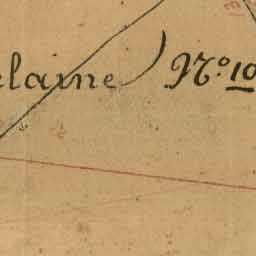 elaine) No. 10